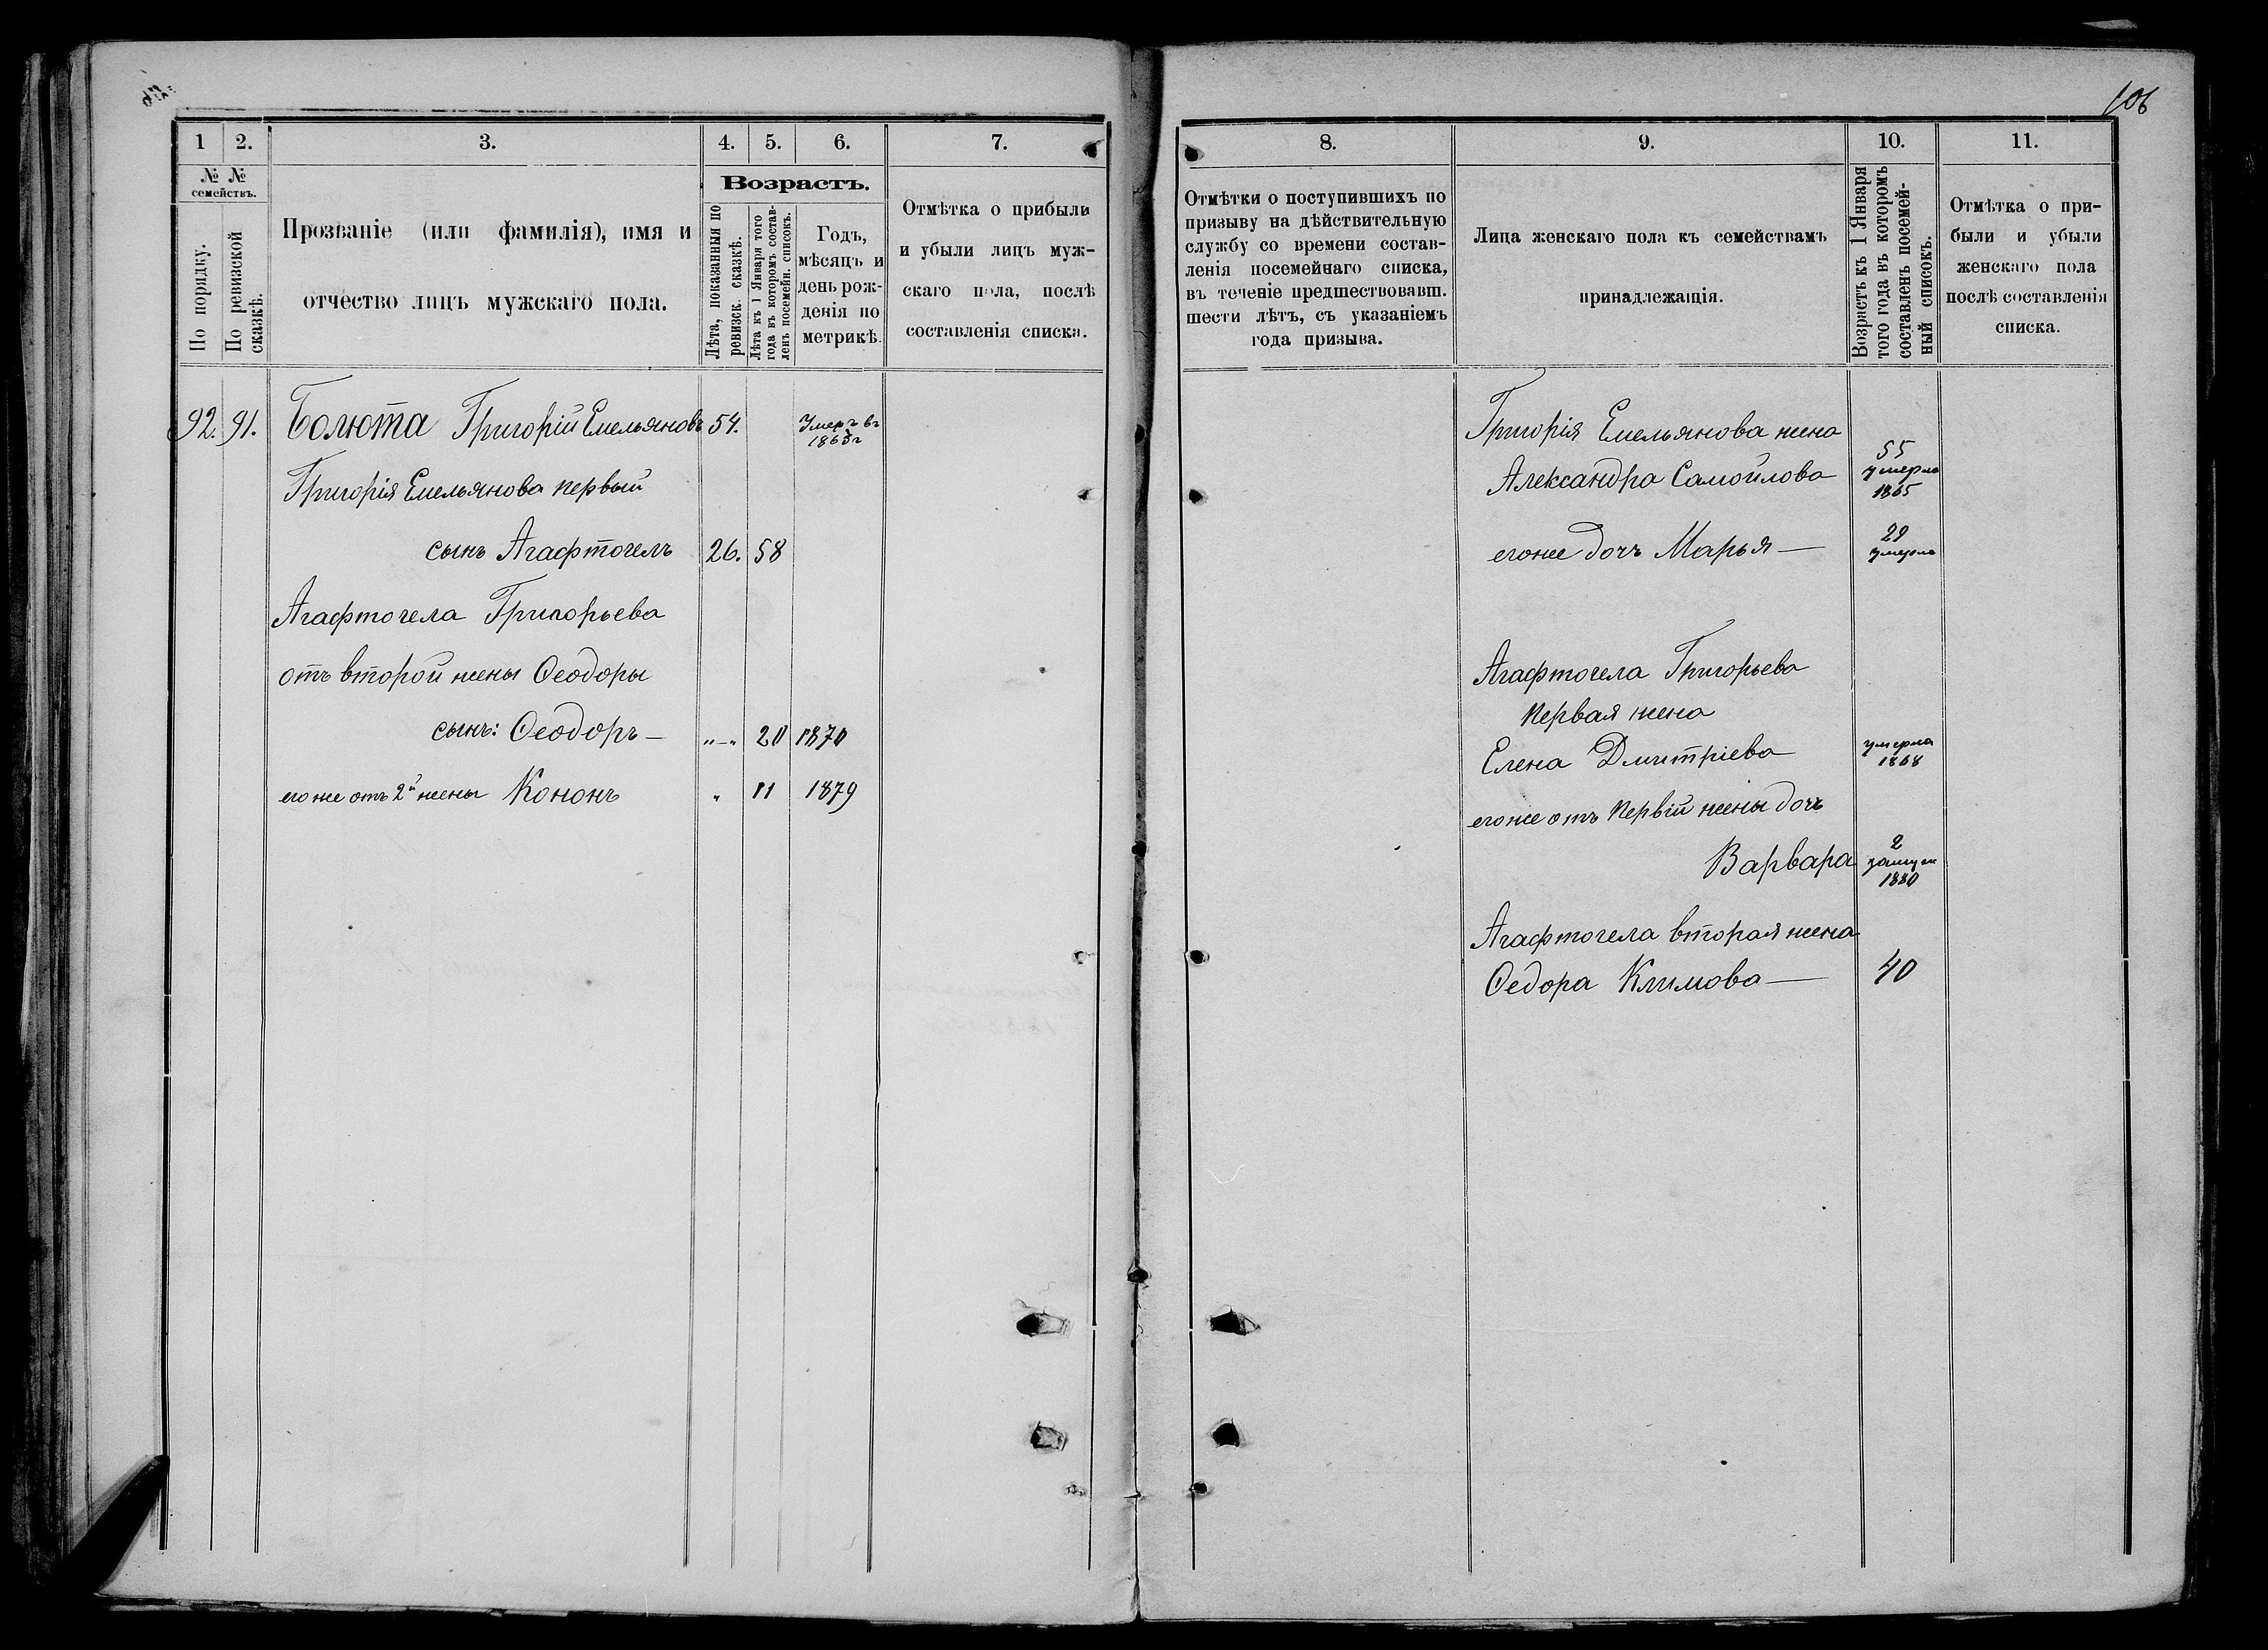 106
1 2. 3. 4. 5. 6. 7.
№ № семействъ.
По порядку.
По ревизской сказкѣ.
Прозваніе (или фамилія), имя и
отчество лицъ мужскаго пола.
Возрастъ.
Лѣта, показанныя по
ревизск. сказкѣ.
Лѣта къ 1 Января того
года въ которомъ состав-
ленъ посемейн. списокъ.
Годъ,
мѣсяцъ и
день рож-
денія по
метрикѣ.
Отмѣтка о прибыли
и убыли лицъ муж-
скаго пола, послѣ
составленія списка.
92. 91. Болюта Григорій Емельяновъ 54. Умеръ въ
1863г
Григорія Емельянова первый
сынъ Агафтогелъ 26. 58
Агафтогела Григорьева
отъ второй жены Ѳеодоры
сынъ: Ѳеодоръ — „—„ 20 1870
его же отъ 2й жены Кононъ „ 11 1879
8. 9. 10. 11.
Отмѣтки о поступившихъ по
призыву на дѣйствительную
службу со времени состав-
ленія посемейнаго списка,
въ теченіе предшествовавш.
шести лѣтъ, съ указаніемъ
года призыва.
Лица женскаго пола къ семействамъ
принадлежащія.
Возрастъ къ 1 Января
того года въ которомъ
составленъ посемей-
ный списокъ.
Отмѣтка о при-
были и убыли
женскаго пола
послѣ составленія
списка.
Григорія Емельянова жена
Александра Самойлова 55
умерла
1865
его же дочь Марья — 29
умерла
Агафтогела Григорьева
первая жена
Елена Дмитріева умерла
1868
его же отъ первій жены дочь
Варвара 2
замуж
1880
Агафтогела вторая жена
Ѳедора Климова — 40